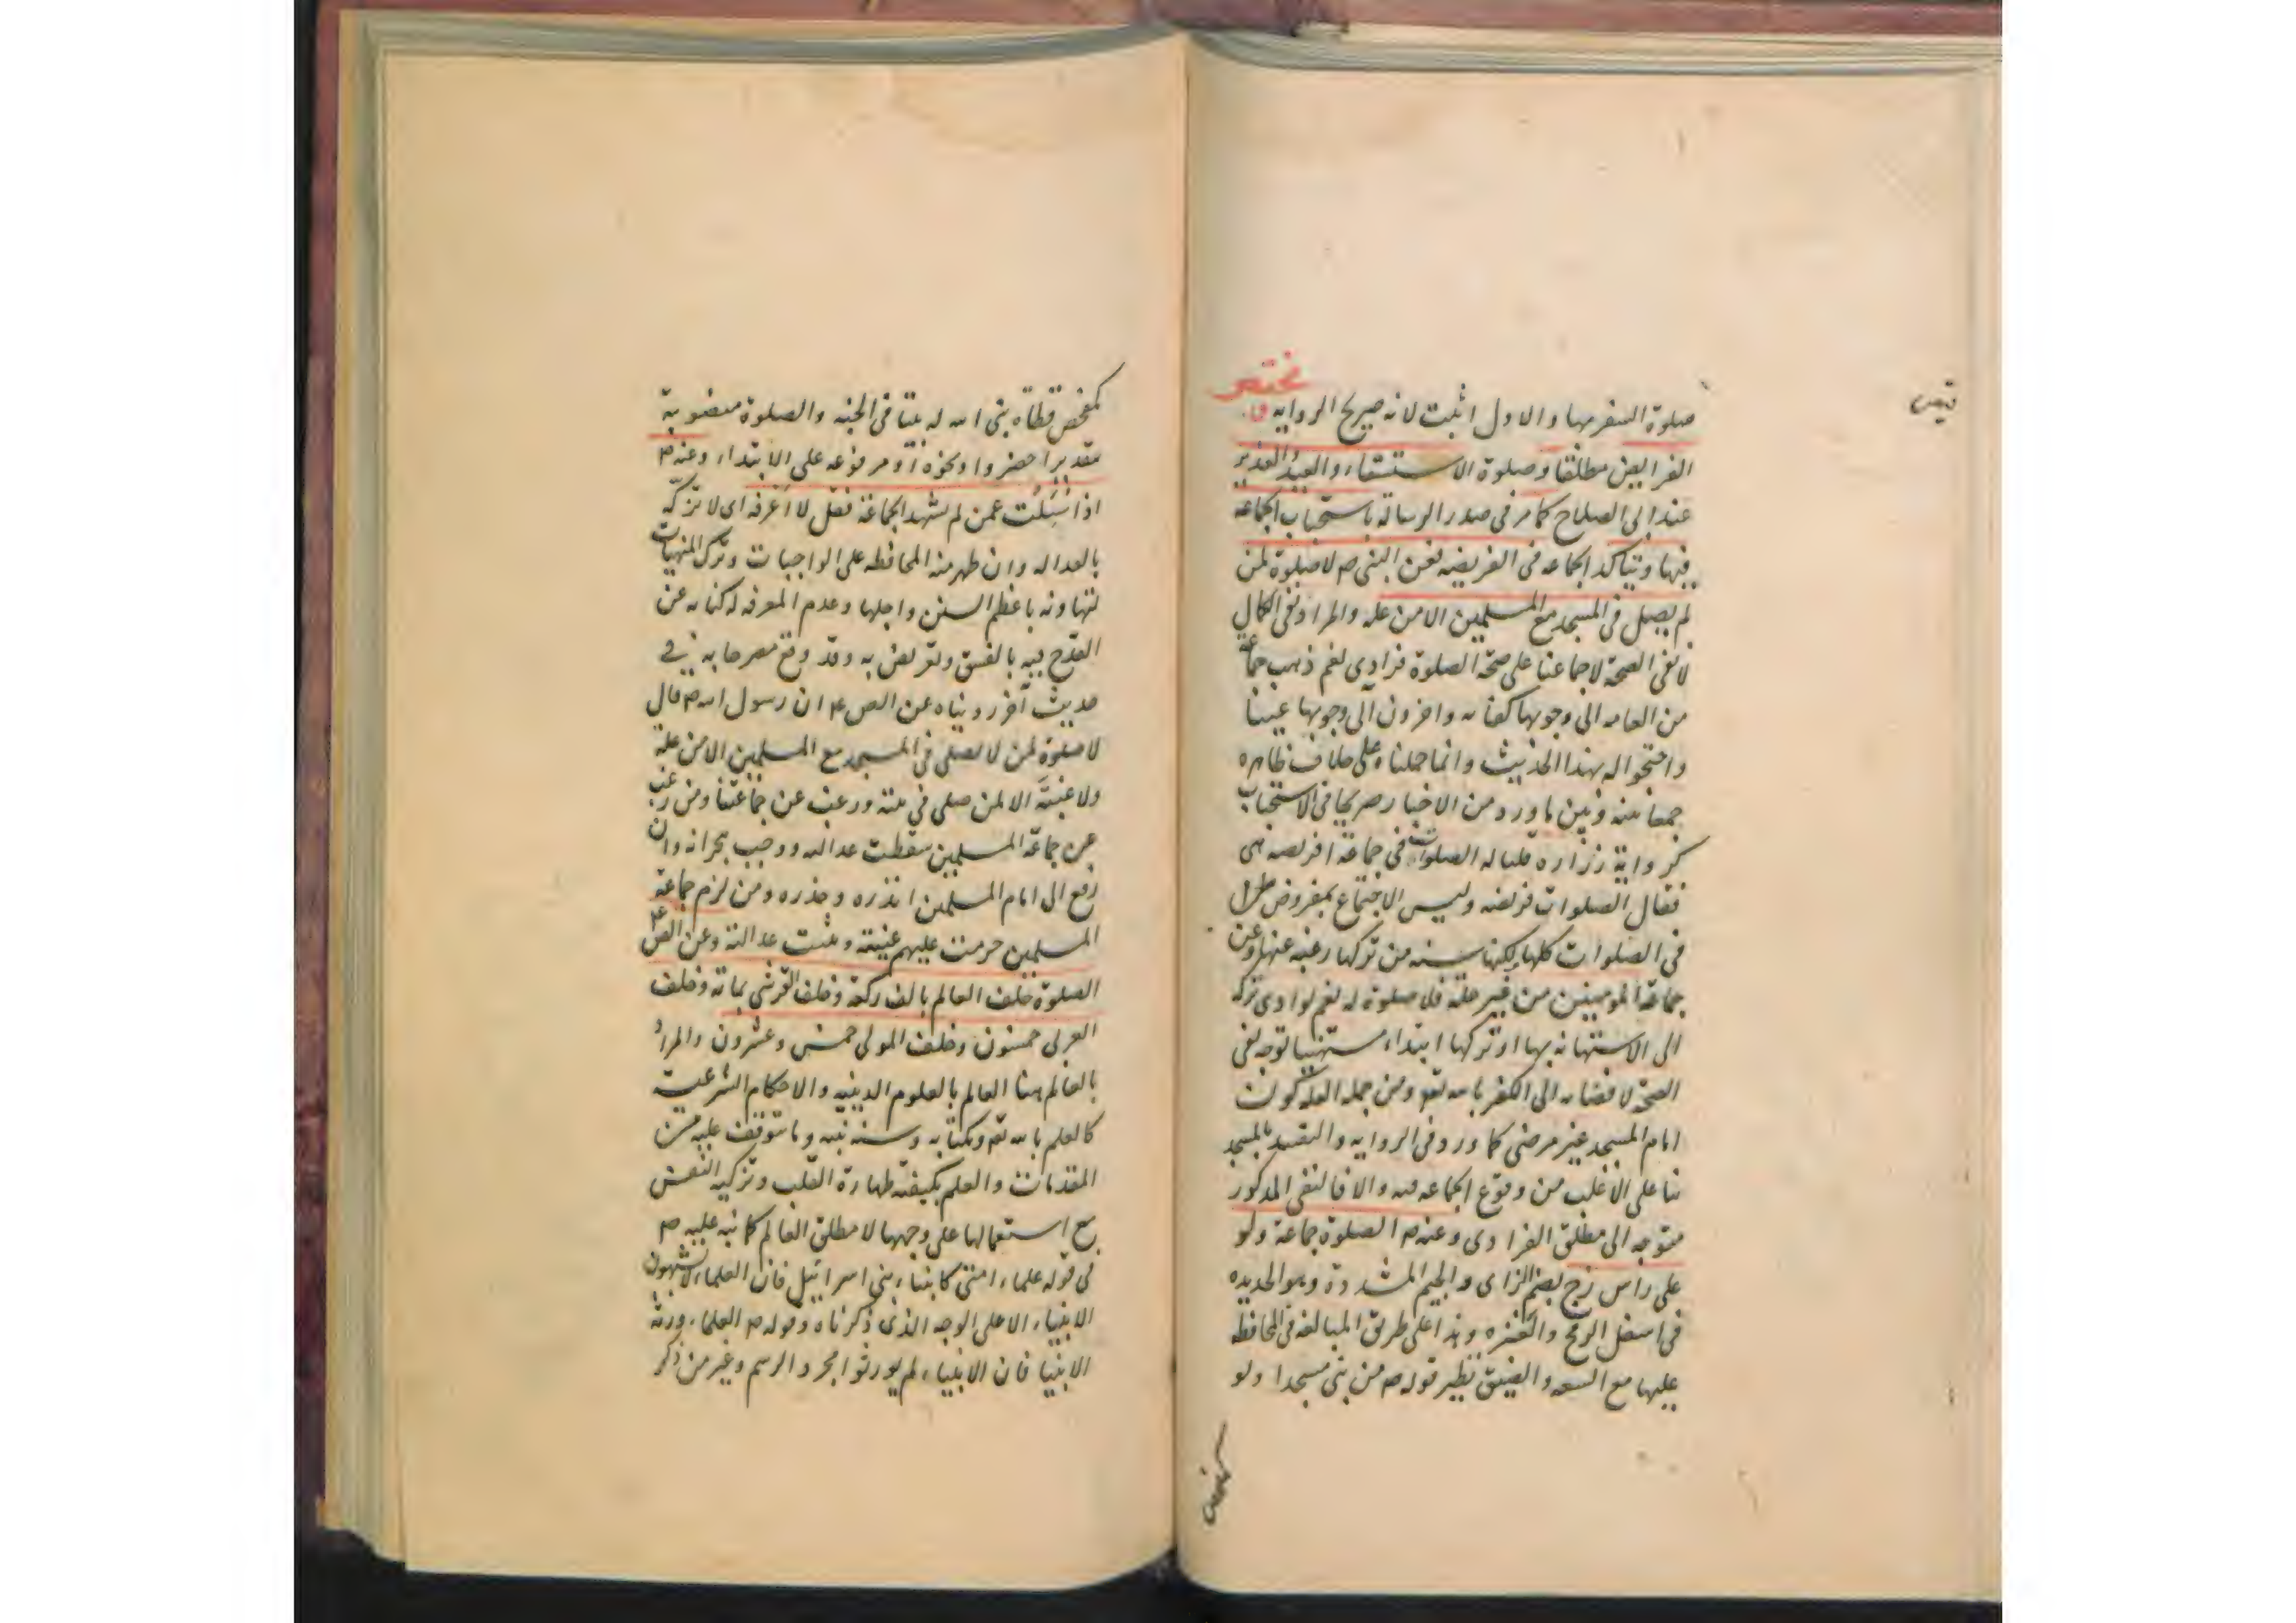 صلوة السفر مها والاول اثبت لانه صريح الروايه
الفرايض مطلقا وصلوة الاستسقاء والعيد والغدير
عند ابى الصلاح كما مر فى صدر الرسالة باستحباب الجماعه
فيها ويتاكد الجماعه فى الفريضه فعن النبى ص لا صلوة لمن
لم يصل فى المسجد مع المسلمين الا من علة والمراد نفى الكمال
لا نفى الصحة لاجماعنا على صحة الصلوة فرادى نعم ذهب جماعة
من العامه الى وجوبها كفايه واخرون الى وجوبها عينا
واحتجوا له بهذا الحديث وانما حملناه على خلاف ظاهره
جمعا بينه وبين ما ورد من الاخبار صريحا فى الاستحباب
كرواية زراره قلنا له الصلوات فى جماعة افريضه هى
فقال الصلوات فريضه وليس الاجتماع بمفروض
فى الصلوات كلها ولكنها سنه من تركها رغبه عنها وعن
جماعة المومنين من غير علة فلا صلوة له نعم لو ادى تركه
الى الاستهانه بها او تركها ابتداء مستهينا توجه نفى
الصحة لافضائه الى الكفر بالله تعو ومن جمله العلة كون
امام المسجد غير مرضى كما ورد فى الروايه والتقييد بالمسجد
بنا على الاغلب من وقوع الجماعه فيه والا فالنفى المذكور
متوجه الى مطلق الفرادى وعنه ص الصلوة جماعة ولو
على راس زج بضم الزاى والجيم المشددة وهو الحديده
فى اسفل الرمح والعنزه وهذا على طريق المبالغه فى المحافظه
عليها مع السعه والضيق نظير قوله ص من بنى مسجدا ولو
كمفحص قطاة بنى الله له بيتا فى الجنه والصلوة منصوبة
بتقدير احضروا ونحوه او مرفوعه على الابتداء وعنه ص
اذا سُئلت عمن لم يشهد الجماعة فقل لا اعرفه اى لا تزكه
بالعداله وان ظهر منه المحافظه على الواجبات وترك المنهيات
لتهاونه باعظم السنن واجلها وعدم المعرفه له كنايه عن
القدح فيه بالفسق وتعريض به وقد وقع مصرحا به في
حديث آخر رويناه عن الص ع ان رسول الله ص قال
لا صلوة لمن لا يصلى فى المسجد مع المسلمين الا من علة
ولا غيبة الا لمن صلى فى بيته ورغب عن جماعتنا ومن رغب
عن جماعة المسلمين سقطت عدالته ووجب هجرانه وان
رفع الى امام المسلمين انذره وحذره ومن لزم جماعة
المسلمين حرمت عليهم غيبته وثبتت عدالته وعن الص ع
الصلوة خلف العالم بالف ركعة وخلف القرشى بمائة وخلف
العربى خمسون وخلف المولى خمس وعشرون والمراد
بالعالم هنا العالم بالعلوم الدينيه والاحكام الشرعية
كالعلم بالله تع وبكتابه وسنه نبيه وما يتوقف عليه من
المقدمات والعلم بكيفية طهارة القلب وتزكيه النفس
مع استعمالها على وجهها لا مطلق العالم كما نبه عليه ص
فى قوله علماء امتى كانبياء بنى اسرائيل فان العلماء لا يشبهون
الانبياء الا على الوجه الذى ذكرناه وقوله ص العلماء ورثة
الانبيا فان الانبياء لم يورثوا مجرد الرسم وغير من ذكر